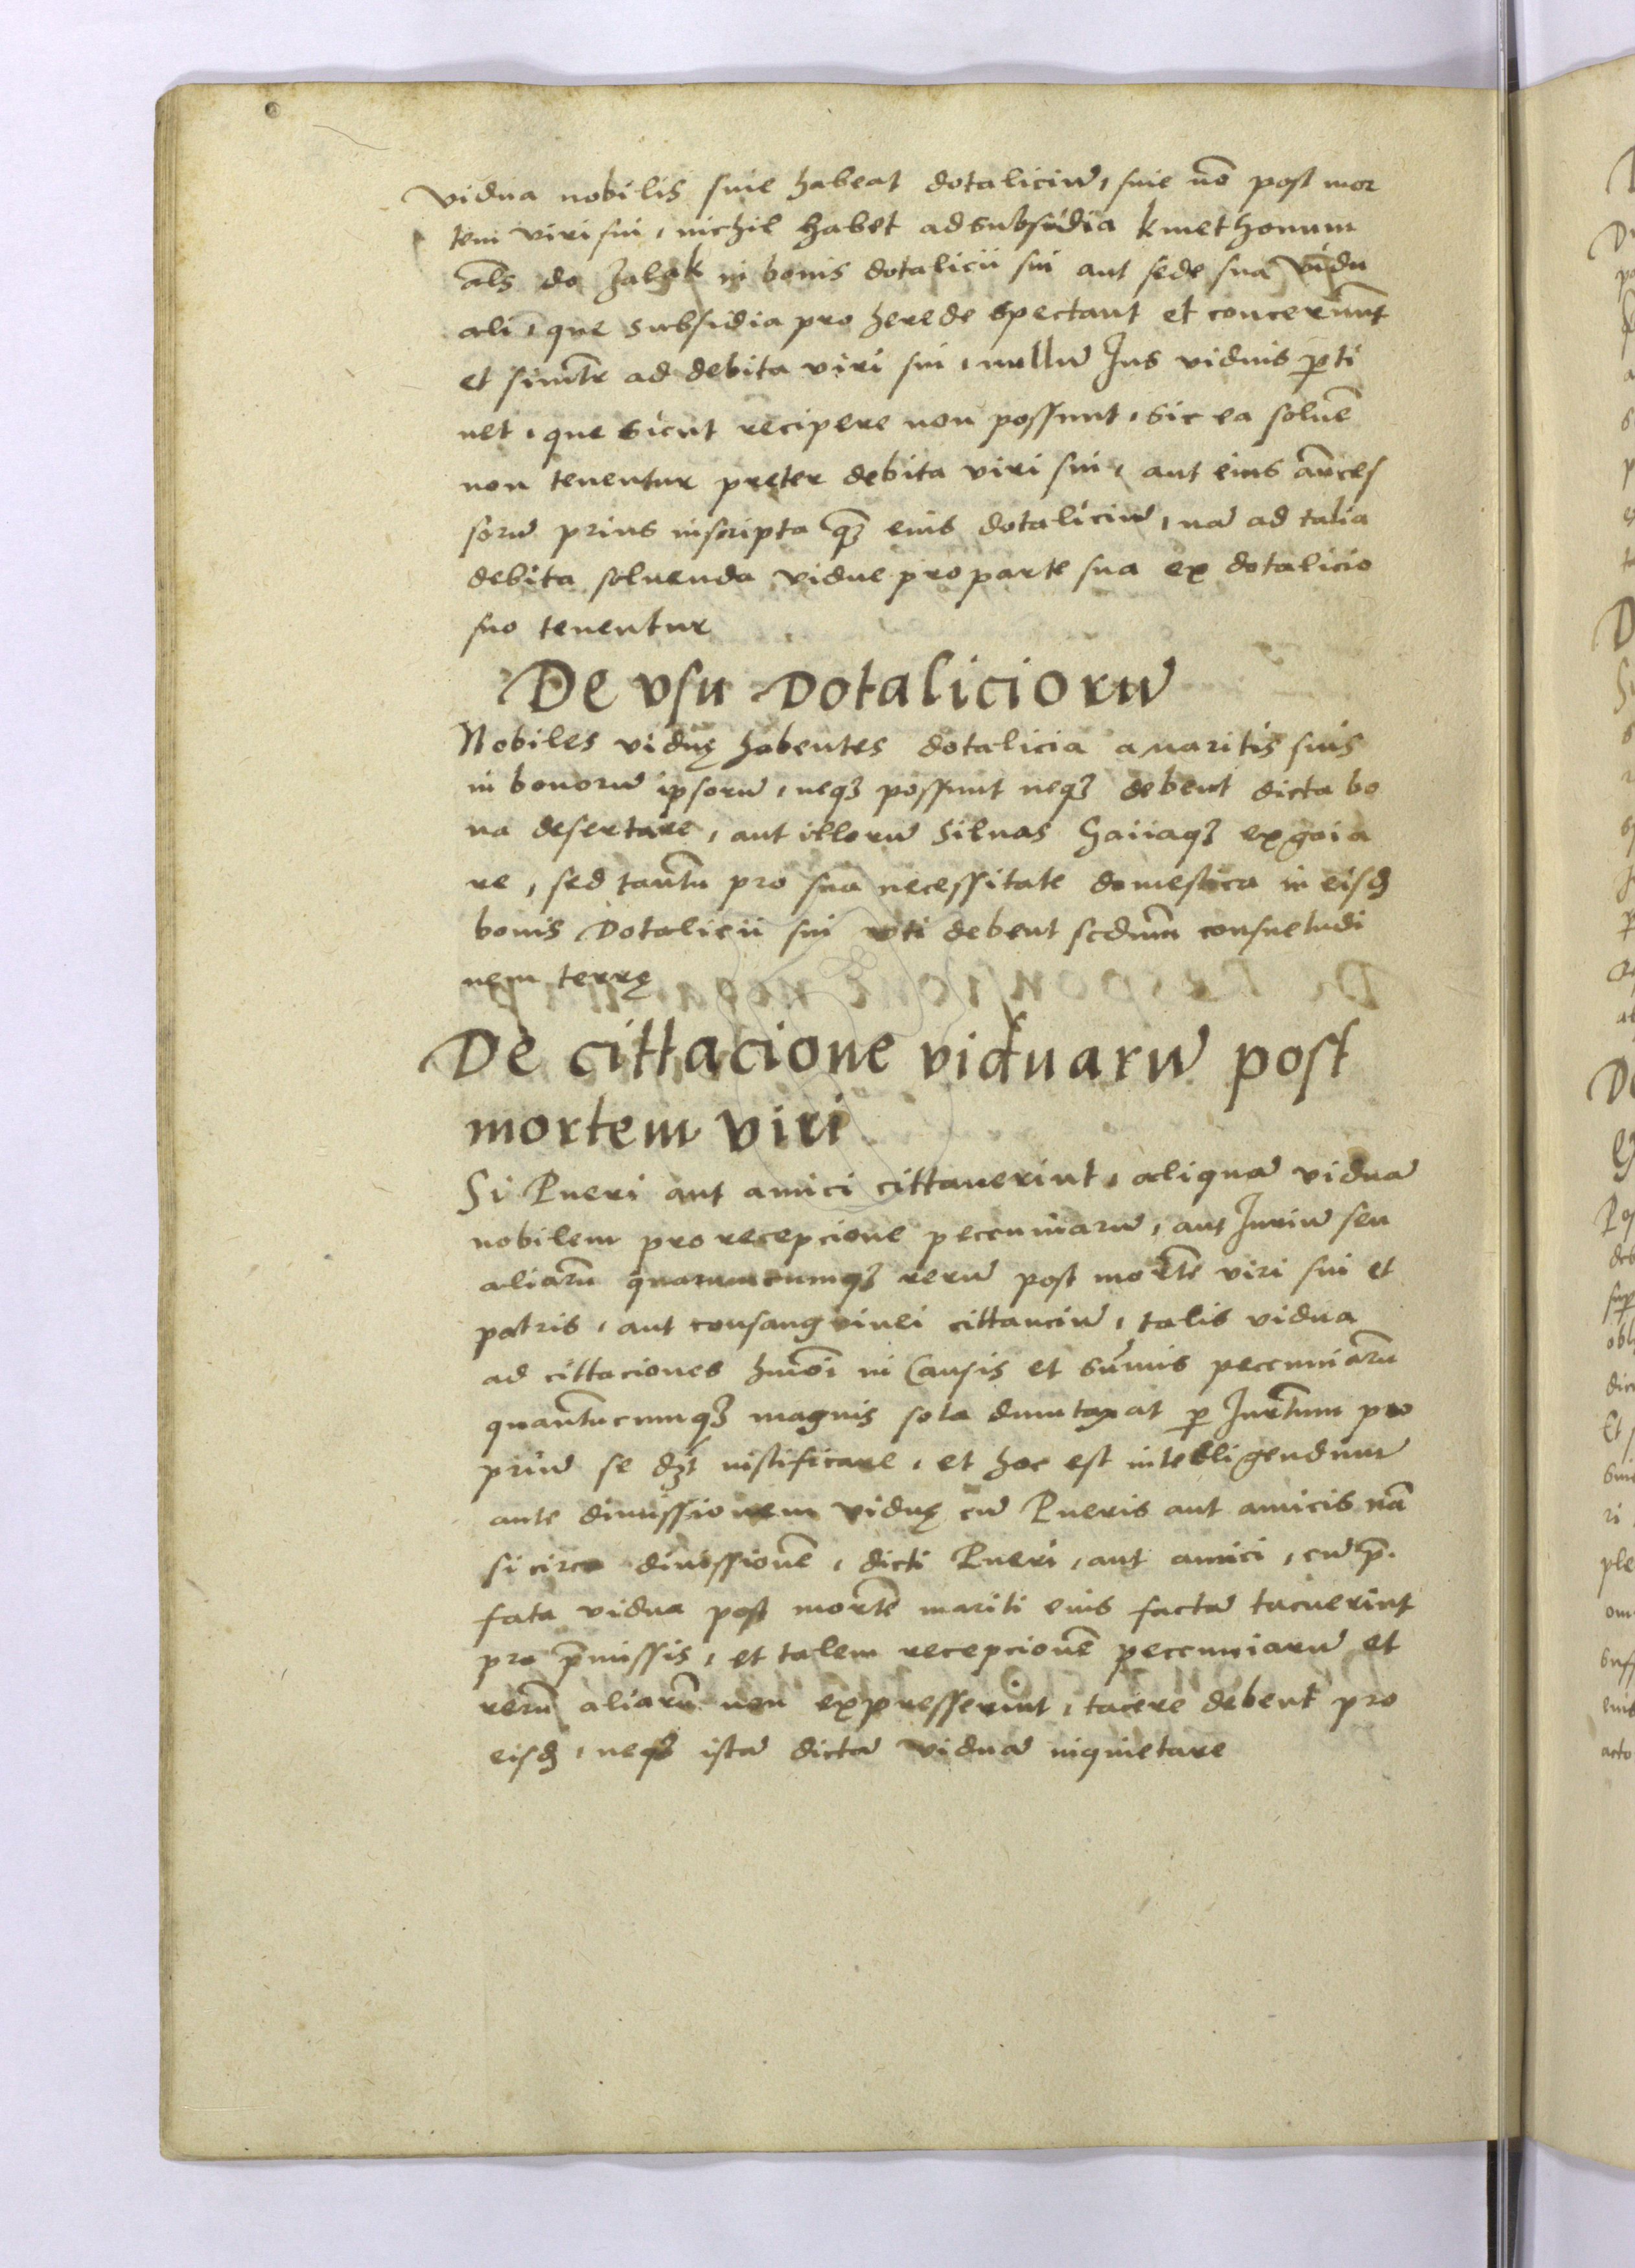 vidua nobilis siue habeat dotaliciū, siue nō post mor
tem viri sui, nichil habet ad subsidia kmethonum
als̄ do zalog in bonis dotalicii sui aut sede sua vidu
ali, que subsidia pro herede spectant et concernūt
et similr̄ ad debita viri sui, nullū Jus viduis ꝑti
net, que sicut recipere non possunt, sic ea soluē
non tenentur preter debita viri sui, aut eius ātices
sorū prius inscripta qȝ eius dotaliciū, nā ad talia
debita soluenda vidue pro parte sua ex dotalicio
suo tenentur
De vsu Dotaliciorū
Nobiles viduę habentes dotalicia a maritis suis
in bonorū ipsorū, neqȝ possunt neqȝ debent dicta bo
na desertare, aut illorū siluas Gaiiaqȝ exgaia
re, sed tantū pro sua necessitate domestica in eisđ
bonis Dotalicii sui vti debent scdum̄ consuetudi
nem terrę
De cittacione viduarū post
mortem viri
Si Pueri aut amici cittauerint, aliquā viduā
nobilem pro recepcione peccuniarū, aut Juriū seu
aliarū quarumcumqȝ rerū post mortē viri sui et
patris, aut consangvinei cittanciū, talis vidua
ad cittaciones hmōi in Causis et sūmis peccuniarū
quantūcumqȝ magnis sola dumtaxat ꝑ Jurtum̄ pro
priū se dȝt iustificare, et hoc est intelligendum
ante diuissionem viduę cū Pueris aut amicis nā
si circa diuissionē, dicti Pueri, aut amici, cū p̄.
fata vidua post mortē mariti eius factā tacuerint
pro p̄missis, et talem recepcionē peccuniarū et
rerū aliarū non expresserint, tacere debent pro
eisđ, neqȝ istā dictā viduā inquietare